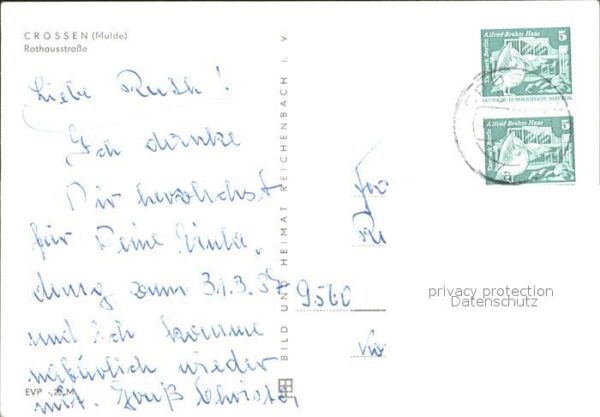 CROSSEN (Mulde)
Rathausstraße
Liebe Ruth!
Ich danke
Dir herzlichst
für Deine Einla-
dung zum 31.3.
und ich komme
natürlich wieder
mit. Gruß Christa,
EVP -,20 M
BILD UND HEIMAT REICHENBACH I. V.
9560
Tierpark Berlin
Alfred Brehm Haus
5
DEUTSCHE DEMOKRATISCHE REPUBLIK
Tierpark Berlin
Alfred Brehm Haus
5
privacy protection
Datenschutz